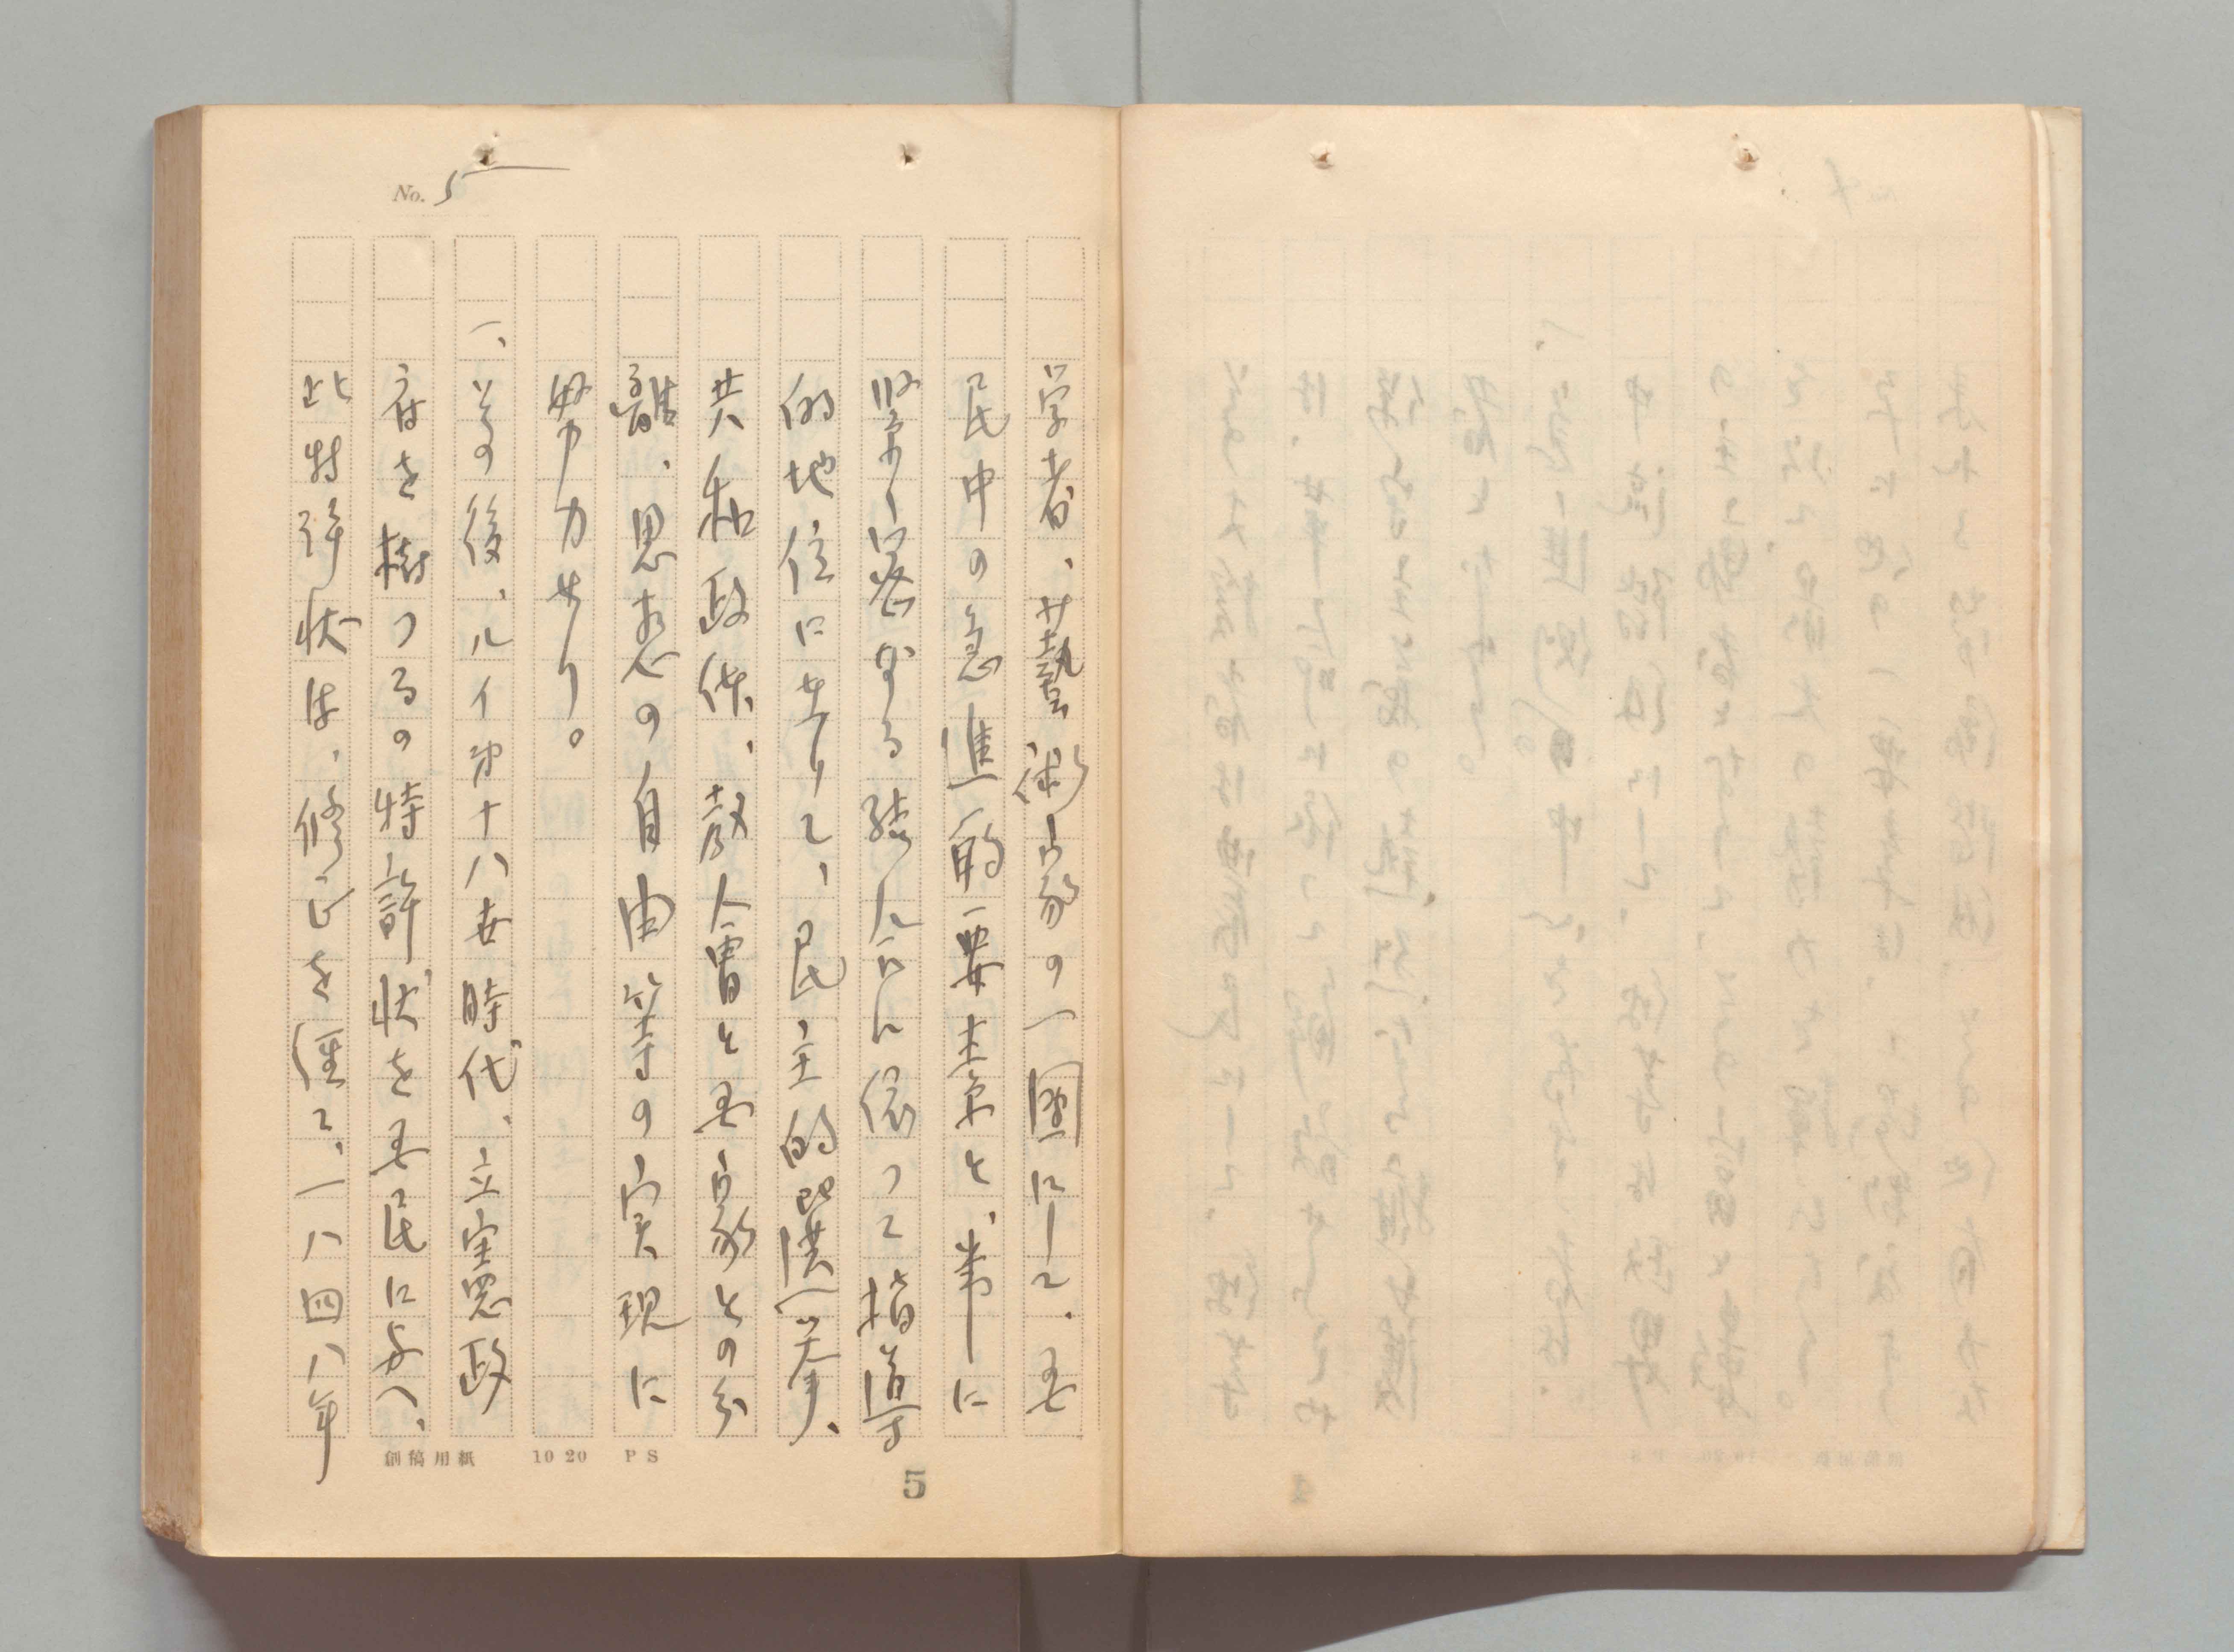 No. 5
学者、藝術家の一團にして、吾
民中の急進的要素と、常に
緊密なる接触に依って指導
的地位にありて、民主的選挙、
共和政体、教會と吾家との分
離、思想の自由等の実現に
努力せり。
一、その後、ルイ第十八世時代、立憲政
府を樹つるの特許状を吾民に与へ、
此特許状は、修正を経て、一八四八年
創稿用紙 10 20 PS
5